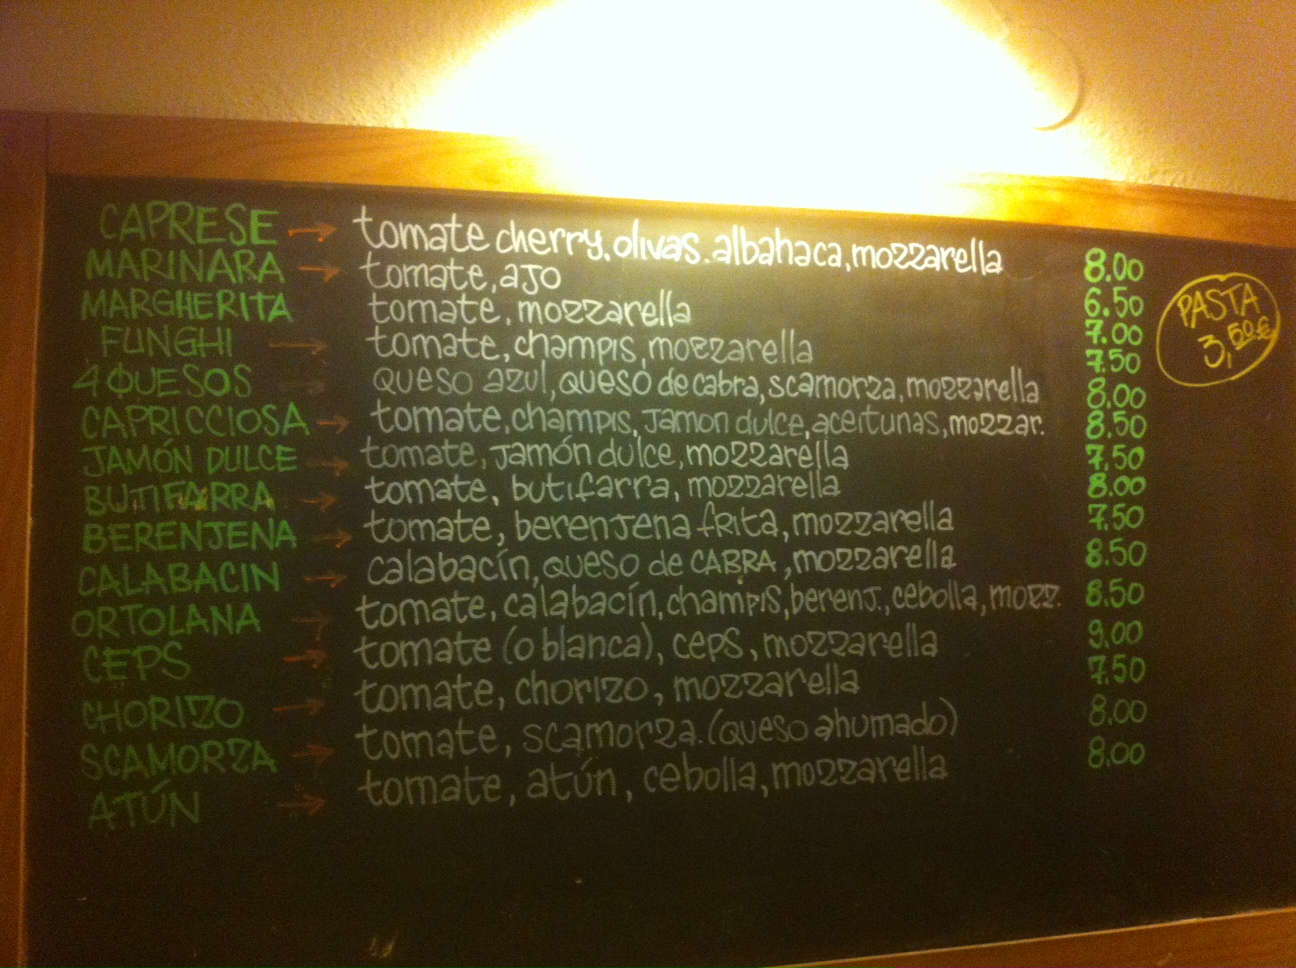 CAPRESE → tomate cherry, olivas, albahaca, mozzarella 8.00
MARINARA → tomate, ajo 6.50
MARGHERITA tomate, mozzarella 7.00
FUNGHI → tomate, champis, mozzarella 7.50
4 QUESOS → queso azul, queso de cabra, scamorza, mozzarella 8.00
CAPRICCIOSA → tomate, champis, Jamon dulce, aceitunas, mozzar. 8.50
JAMÓN DULCE → tomate, Jamón dulce, mozzarella 7.50
BUTIFARRA → tomate, butifarra, mozzarella 8.00
BERENJENA → tomate, berenjena frita, mozzarella 7.50
CALABACIN → calabacín, queso de CABRA, mozzarella 8.50
ORTOLANA → tomate, calabacín, champis, berenj., cebolla, mozz. 8.50
CEPS → tomate (o blanca), ceps, mozzarella 9,00
CHORIZO → tomate, chorizo, mozzarella 7.50
SCAMORZA → tomate, scamorza. (queso ahumado) 8.00
ATÚN → tomate, atún, cebolla, mozzarella 8.00
PASTA
3,50€